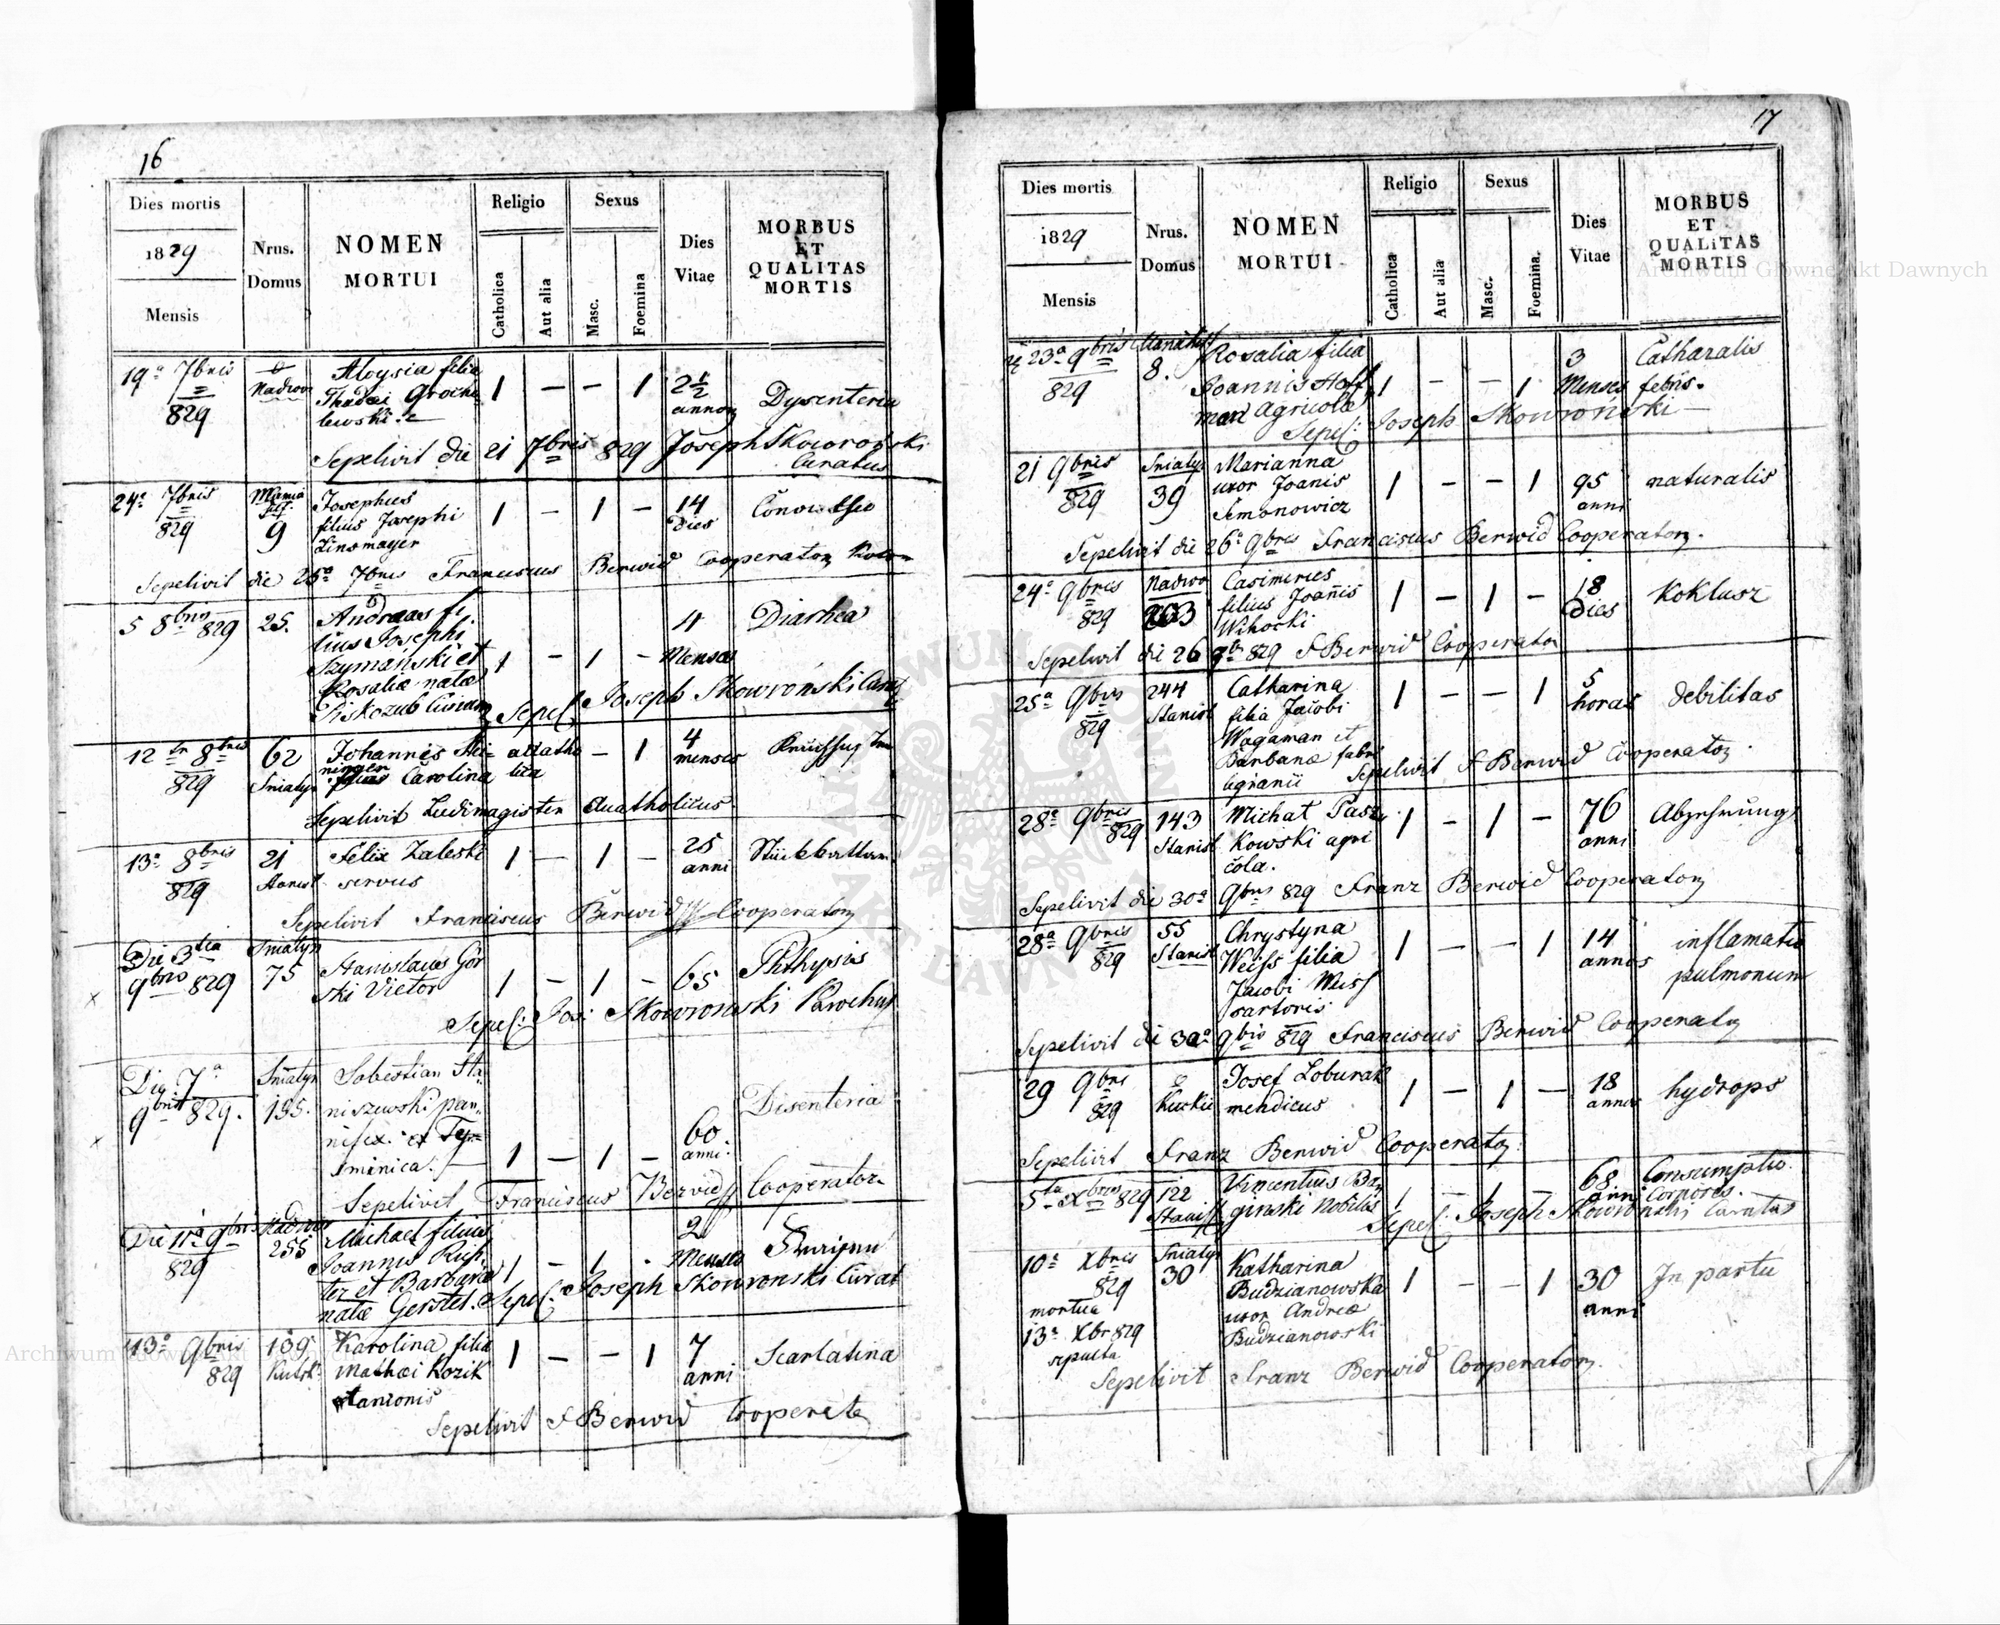 16
Dies mortis
1829
Mensis
Nrus.
Domus
NOMEN
MORTUI
Religio
Catholica
Aut alia
Sexus
Masc.
Foemina
Dies
Vitae
MORBUS
ET
QUALITAS
MORTIS
19a 7bris 829
Aloysia filia
1 — — 1
2 1/2
annor
Dysenteria
lewski
Sepelivit die 21 7bris 829 Joseph Skowroński
Curatus
24a 7bris 829
9
Josephus
filius Josephi
Zinsmayer
1 — 1 —
14
Dies
Sepelivit die 25a 7bris Franciscus Berwid Cooperator
5 8bris 829
25.
Andreas fi-
lius Josephi
Szymański et
Rosaliæ natæ
Piskozub
1 — 1 —
4
Menses
Diarhea
Sepel: Joseph Skowronski
12 8bris 829
62
Sniatyn
Johannis
Carolina
— 1
4
menses
Sepelivit Ludimagister Acatholicus
13a 8bris 829
21
Stanisl
Felix Zaleski
servus
1 — 1 —
25
anni
Sepelivit Franciscus Berwid Cooperator
Die 3tia
9bris 829
Sniatyn
75
Stanislaus Gór
ski Victor
1 — 1 — 65
Phthysis
Sepel: Jos: Skowronski Parochus
Die 7a
9bris 829.
Sniatyn
195.
Sabestian Sta-
niszewski pan-
nifex
1 — 1 —
60
anni.
Disenteria
Sepelivit Franciscus Berwid Cooperator
Die 11a 9bris
829
255
Michael filius
Joannis Rich-
ter et Barbaræ
natæ Gerstel.
1 — 1 -
2
Menses
Sepel: Joseph Skowronski Curat
13a 9bris
829
139
Karolina filia
Mathæi Kozik
1 — — 1
7
anni
Scarlatina
Sepelivit F Berwid Cooperator
17
Dies mortis
1829
Mensis
Nrus.
Domus
NOMEN
MORTUI
Religio
Catholica
Aut alia
Sexus
Masc.
Foemina.
Dies
Vitae
MORBUS
ET
QUALITAS
MORTIS
23a 9bris
829
8.
Rosalia filia
Joannis Hoff
man Agricolæ
1 — — 1
3
Menses
Catharalis
febris.
Sepel: Joseph Skowroński —
21 9bris
829
Sniatyn
39
Marianna
uxor Joanis
Simonowicz
1 — — 1
95
anni
naturalis
Sepelivit die 26a 9bris Franciscus Berwid Cooperator.
24a 9bris
829
Nadwo
Casimirus
filius Joanis
1 — 1 —
18
Dies
Koklusz
Sepelivit die 26 9br 829 F Berwid Cooperator
25a 9bris
829
244
Stanisl
Catharina
filia Jacobi
Wagaman et
Barbaræ fabri
lignarii
1 — — 1
5
horas
debilitas
Sepelivit F Berwid Cooperator
28a 9bris
829
143
Stanisl
Michał Pasz
kowski agri
cola.
1 — 1 —
76
anni
Abzehrung
Sepelivit die 30a 9bris 829 Franz Berwid Cooperator
28a 9bris
829
55
Stanisl
Chrystyna
Weiss filia
Jacobi Weiss
sartoris
1 — — 1
14
annos
inflamatio
pulmonum
Sepelivit die 30a 9bris 829 Franciscus Berwid Cooperator
29 9bris
829
Josef Loburak
mendicus
1 — 1 —
18
annos
hydrops
Sepelivit Franz Berwid Cooperator
5ta Xbris 829
122
Stanisl
Vincentius
ginski Nobilis
1 — 1 —
68
anni
Consumptio
Corporis.
Sepel: Joseph Skowronski Curatus
10a Xbris
829
mortua
13a Xbr 829
sepulta
Sniatyn
30
Katharina
Budzianowska
uxor Andreæ
Budzianowski
1 — — 1
30
anni
In partu
Sepelivit Franz Berwid Cooperator.
Archiwum Główne Akt Dawnych